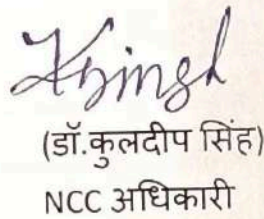 (डॉ.कुलदीप सिंह)
NCC अधिकारी